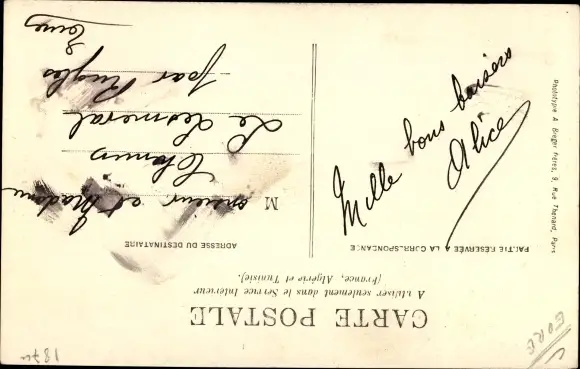 CARTE POSTALE
A utiliser seulement dans le Service Intérieur
(France, Algérie et Tunisie).
PARTIE RÉSERVÉE A LA CORRESPONDANCE
ADRESSE DU DESTINATAIRE
Mille bons baisers
Alice
Monsieur et Madame
Le
par Rugles
Eure
Phototypie A. Breger frères, 9, Rue Thénard, Paris
EURE